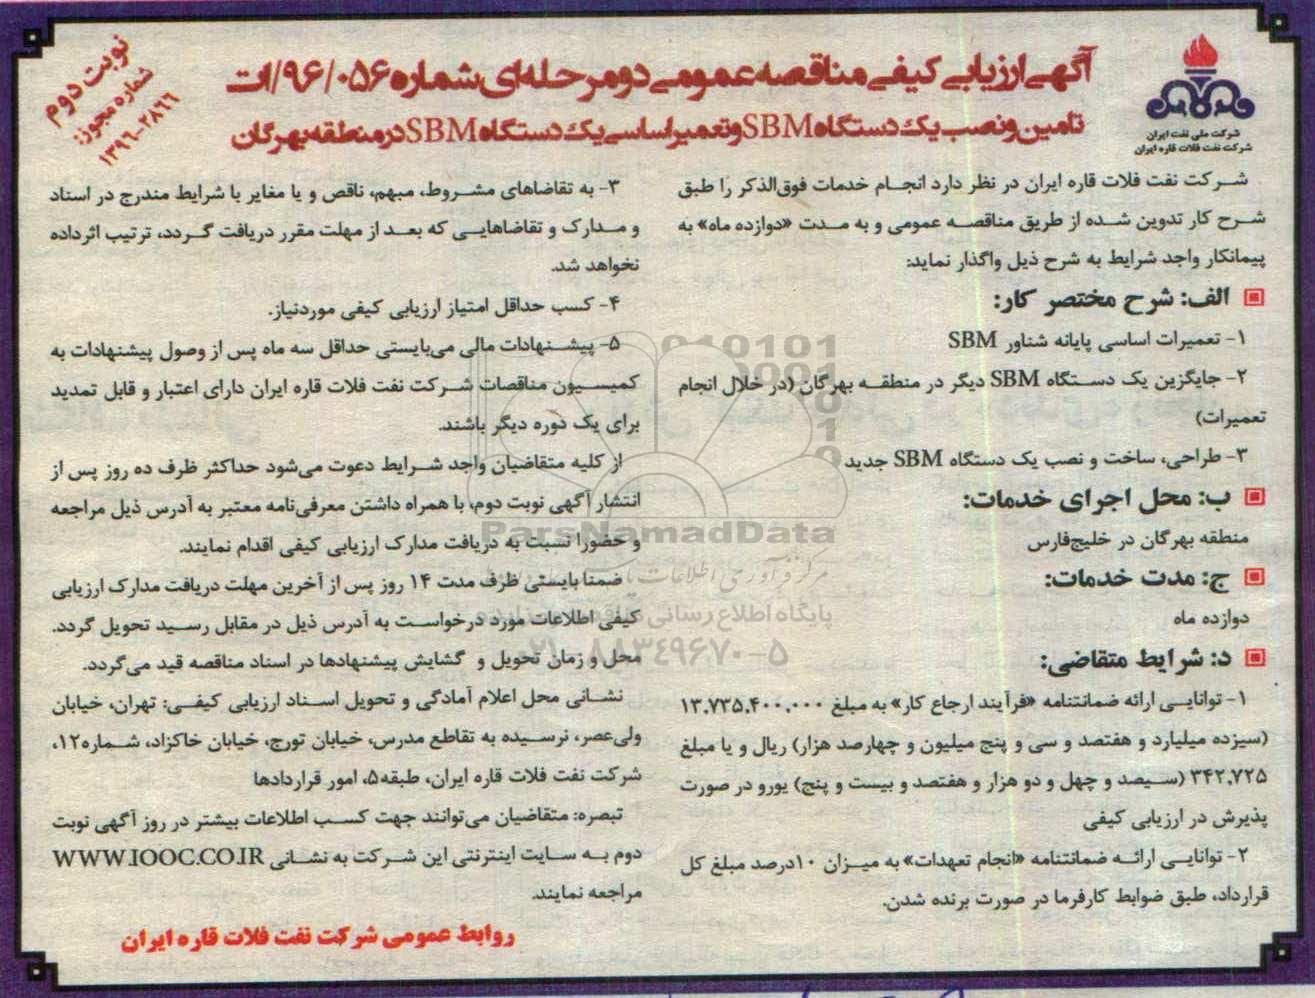 آگهی ارزیابی کیفی مناقصه عمومی دو مرحله‌ای شماره ۹۶/۰۵۶/ات
تامین و نصب یک دستگاه SBM و تعمیر اساسی یک دستگاه SBM در منطقه بهرگان
نوبت دوم
شماره مجوز:
۱۳۹۶-۲۸۶۶
شرکت ملی نفت ایران
شرکت نفت فلات قاره ایران
شرکت نفت فلات قاره ایران در نظر دارد انجام خدمات فوق‌الذکر را طبق
شرح کار تدوین شده از طریق مناقصه عمومی و به مدت «دوازده ماه» به
پیمانکار واجد شرایط به شرح ذیل واگذار نماید:
الف: شرح مختصر کار:
۱- تعمیرات اساسی پایانه شناور SBM
۲- جایگزین یک دستگاه SBM دیگر در منطقه بهرگان (در خلال انجام
تعمیرات)
۳- طراحی، ساخت و نصب یک دستگاه SBM جدید
ب: محل اجرای خدمات:
منطقه بهرگان در خلیج‌فارس
ج: مدت خدمات:
دوازده ماه
د: شرایط متقاضی:
۱- توانایی ارائه ضمانتنامه «فرآیند ارجاع کار» به مبلغ ۱۳.۷۳۵.۴۰۰.۰۰۰
(سیزده میلیارد و هفتصد و سی و پنج میلیون و چهارصد هزار) ریال و یا مبلغ
۳۴۲.۷۲۵ (سیصد و چهل و دو هزار و هفتصد و بیست و پنج) یورو در صورت
پذیرش در ارزیابی کیفی
۲- توانایی ارائه ضمانتنامه «انجام تعهدات» به میزان ۱۰درصد مبلغ کل
قرارداد، طبق ضوابط کارفرما در صورت برنده شدن.
۳- به تقاضاهای مشروط، مبهم، ناقص و یا مغایر با شرایط مندرج در اسناد
و مدارک و تقاضاهایی که بعد از مهلت مقرر دریافت گردد، ترتیب اثرداده
نخواهد شد.
۴- کسب حداقل امتیاز ارزیابی کیفی موردنیاز.
۵- پیشنهادات مالی می‌بایستی حداقل سه ماه پس از وصول پیشنهادات به
کمیسیون مناقصات شرکت نفت فلات قاره ایران دارای اعتبار و قابل تمدید
برای یک دوره دیگر باشند.
از کلیه متقاضیان واجد شرایط دعوت می‌شود حداکثر ظرف ده روز پس از
انتشار آگهی نوبت دوم، با همراه داشتن معرفی‌نامه معتبر به آدرس ذیل مراجعه
و حضورا نسبت به دریافت مدارک ارزیابی کیفی اقدام نمایند.
ضمنا بایستی ظرف مدت ۱۴ روز پس از آخرین مهلت دریافت مدارک ارزیابی
کیفی اطلاعات مورد درخواست به آدرس ذیل در مقابل رسید تحویل گردد.
محل و زمان تحویل و گشایش پیشنهادها در اسناد مناقصه قید می‌گردد.
نشانی محل اعلام آمادگی و تحویل اسناد ارزیابی کیفی: تهران، خیابان
ولی‌عصر، نرسیده به تقاطع مدرس، خیابان تورج، خیابان خاکزاد، شماره۱۲،
شرکت نفت فلات قاره ایران، طبقه۵، امور قراردادها
تبصره: متقاضیان می‌توانند جهت کسب اطلاعات بیشتر در روز آگهی نوبت
دوم به سایت اینترنتی این شرکت به نشانی WWW.IOOC.CO.IR
مراجعه نمایند.
روابط عمومی شرکت نفت فلات قاره ایران
ParsNamadData
پایگاه اطلاع رسانی
۰۲۱-۸۸۳۴۹۶۷۰-۵